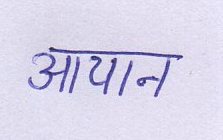 आयान